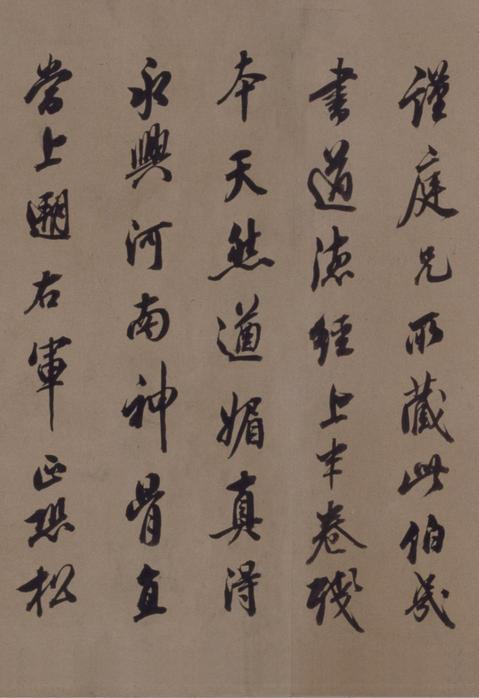 謹庭兄所藏此伯幾
書道德經上半卷殘
本天然遒媚真得
永興河南神骨直
當上遡右軍正恐松